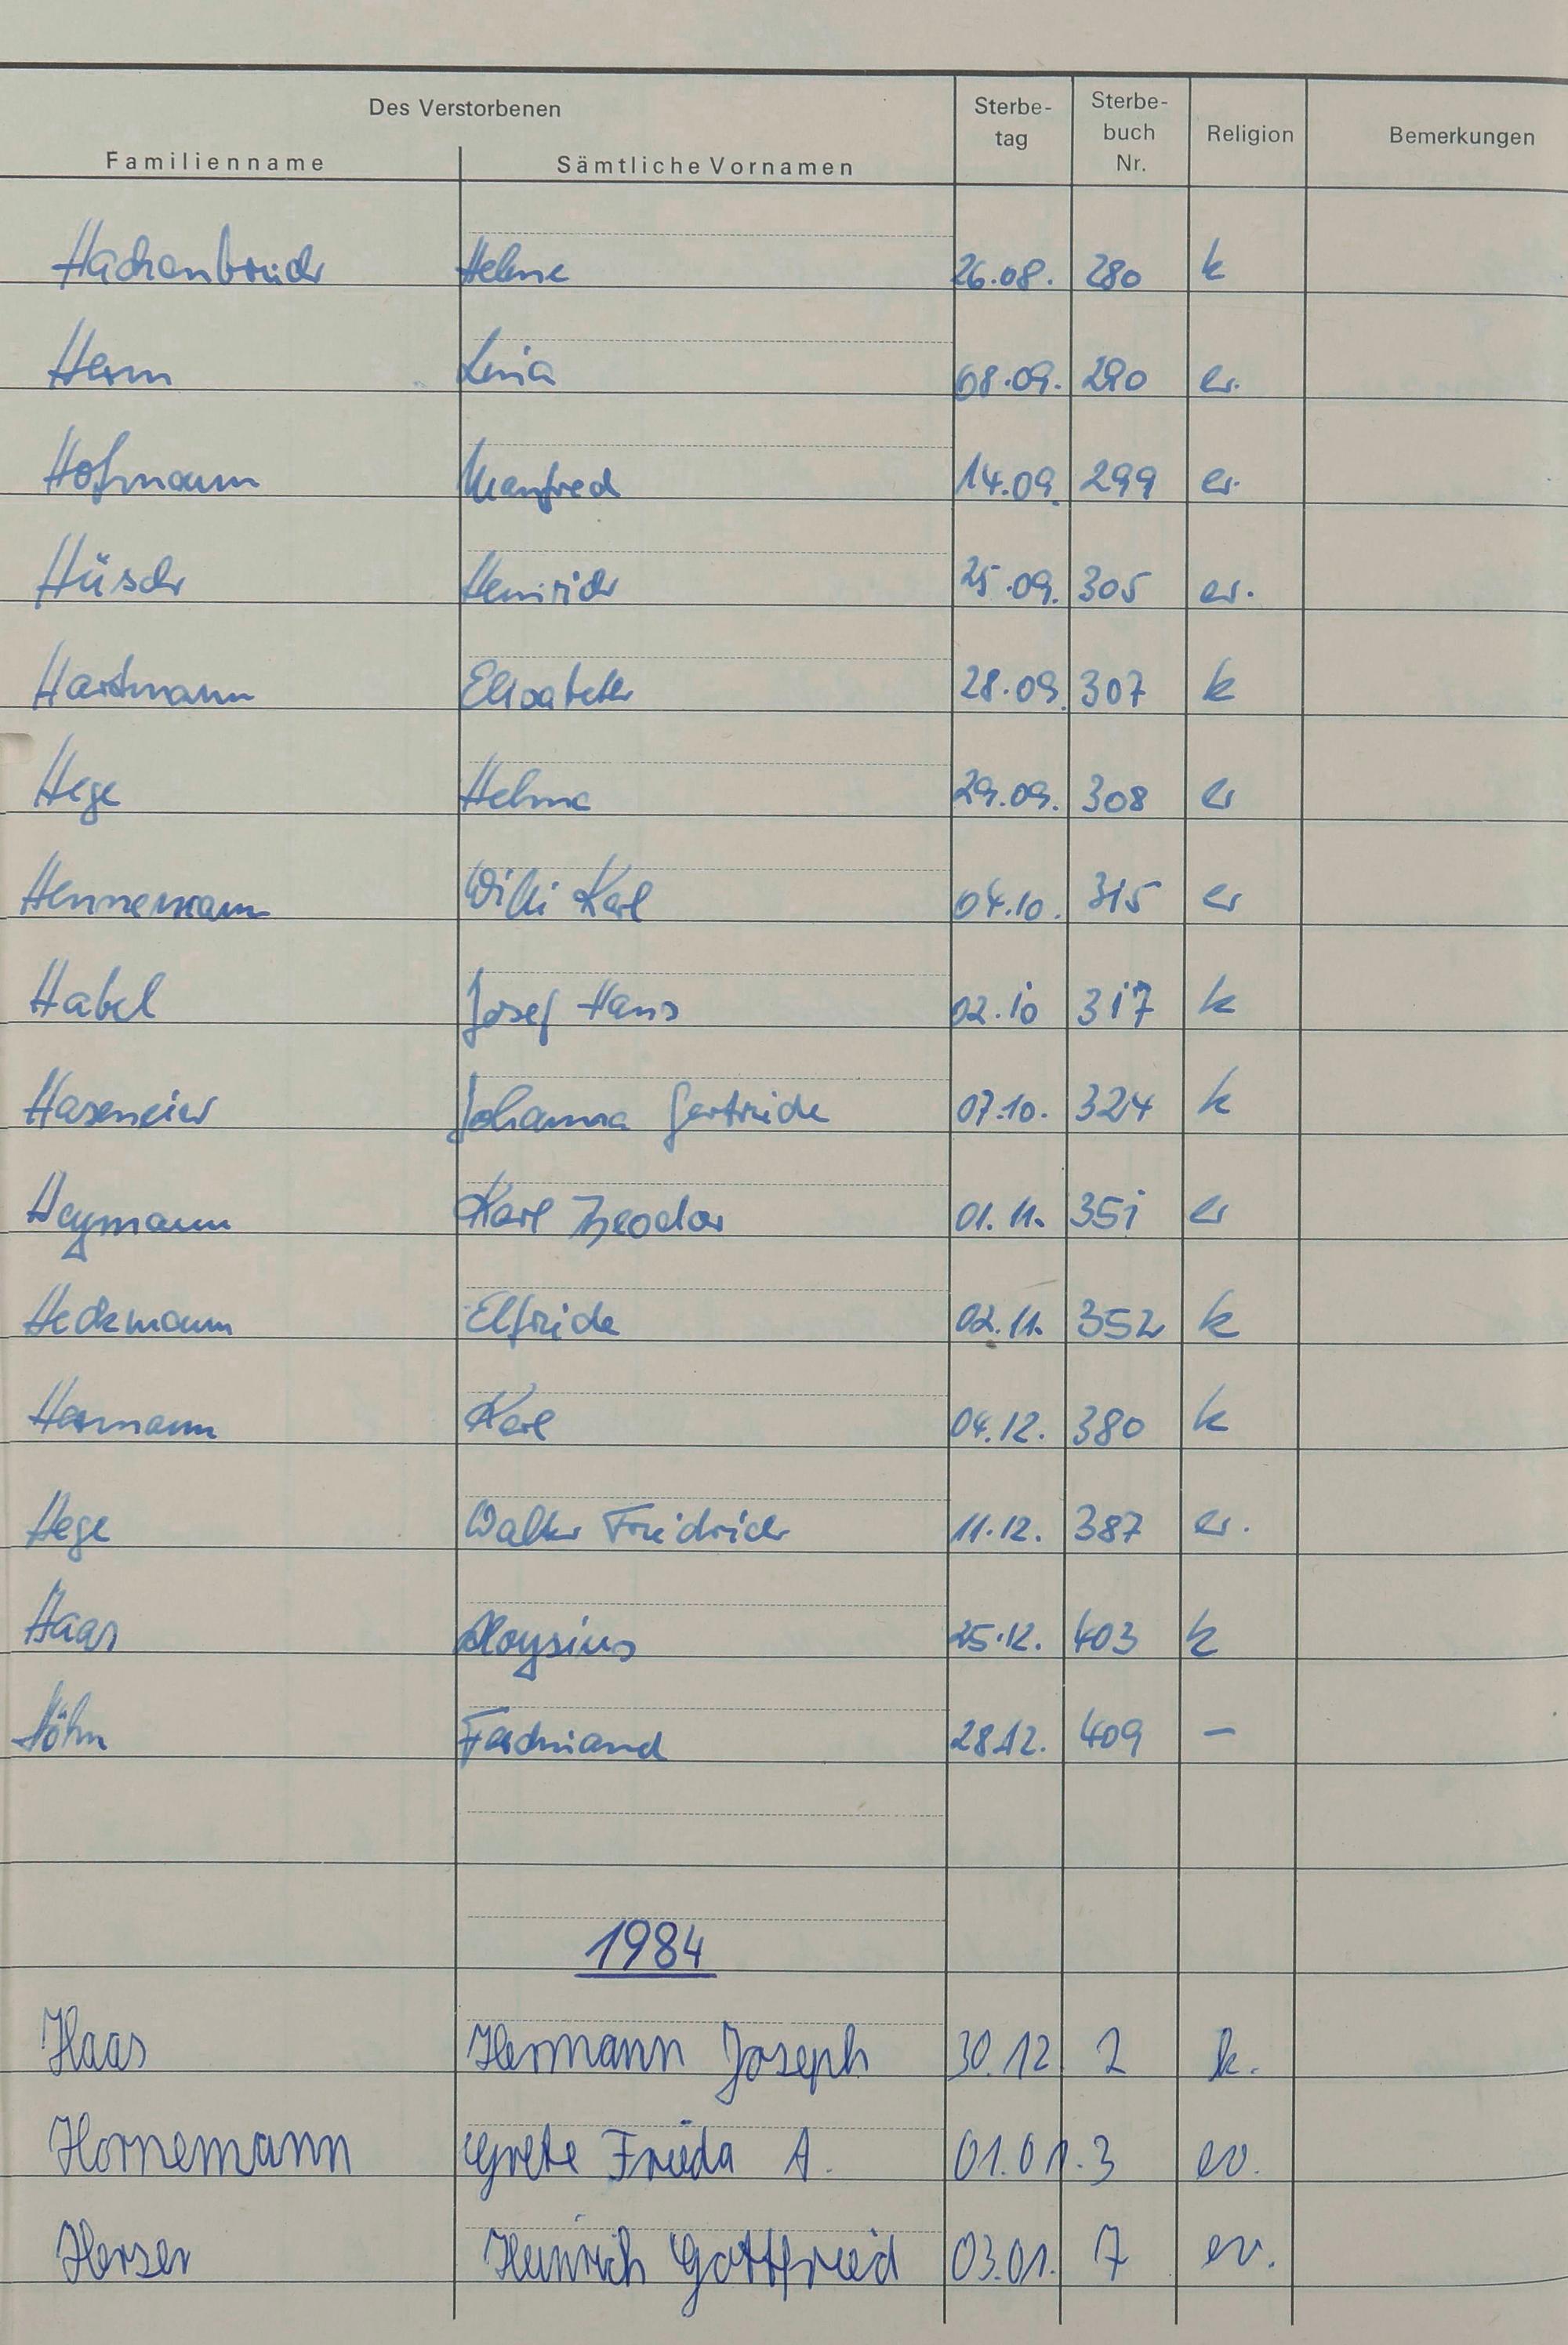 Des Verstorbenen
Familienname Sämtliche Vornamen Sterbe-tag Sterbe-buch Nr. Religion Bemerkungen
Hachenbruch Helene 26.08. 280 k
Herm Lina 08.09. 290 ev.
Hofmann Manfred 14.09. 299 ev.
Hüsch Heinrich 25.09. 305 ev.
Hartmann Elisabeth 28.09. 307 k
Hege Helene 29.09. 308 ev
Hennemann Willi Karl 04.10. 315 ev
Habel Josef Hans 02.10 317 k
Haseneier Johanna Gertrude 07.10. 324 k
Heymann Karl Theodor 01.11. 351 ev
Heckmann Elfriede 02.11. 352 k
Hermann Karl 04.12. 380 k
Hege Walter Friedrich 11.12. 387 ev.
Haas Aloysius 25.12. 403 k
Höhn Ferdinand 28.12. 409 –
1984
Haas Hermann Joseph 30.12 2 k.
Hornemann Grete Frieda A. 01.01. 3 ev.
Herser Heinrich Gottfried 03.01. 7 ev.